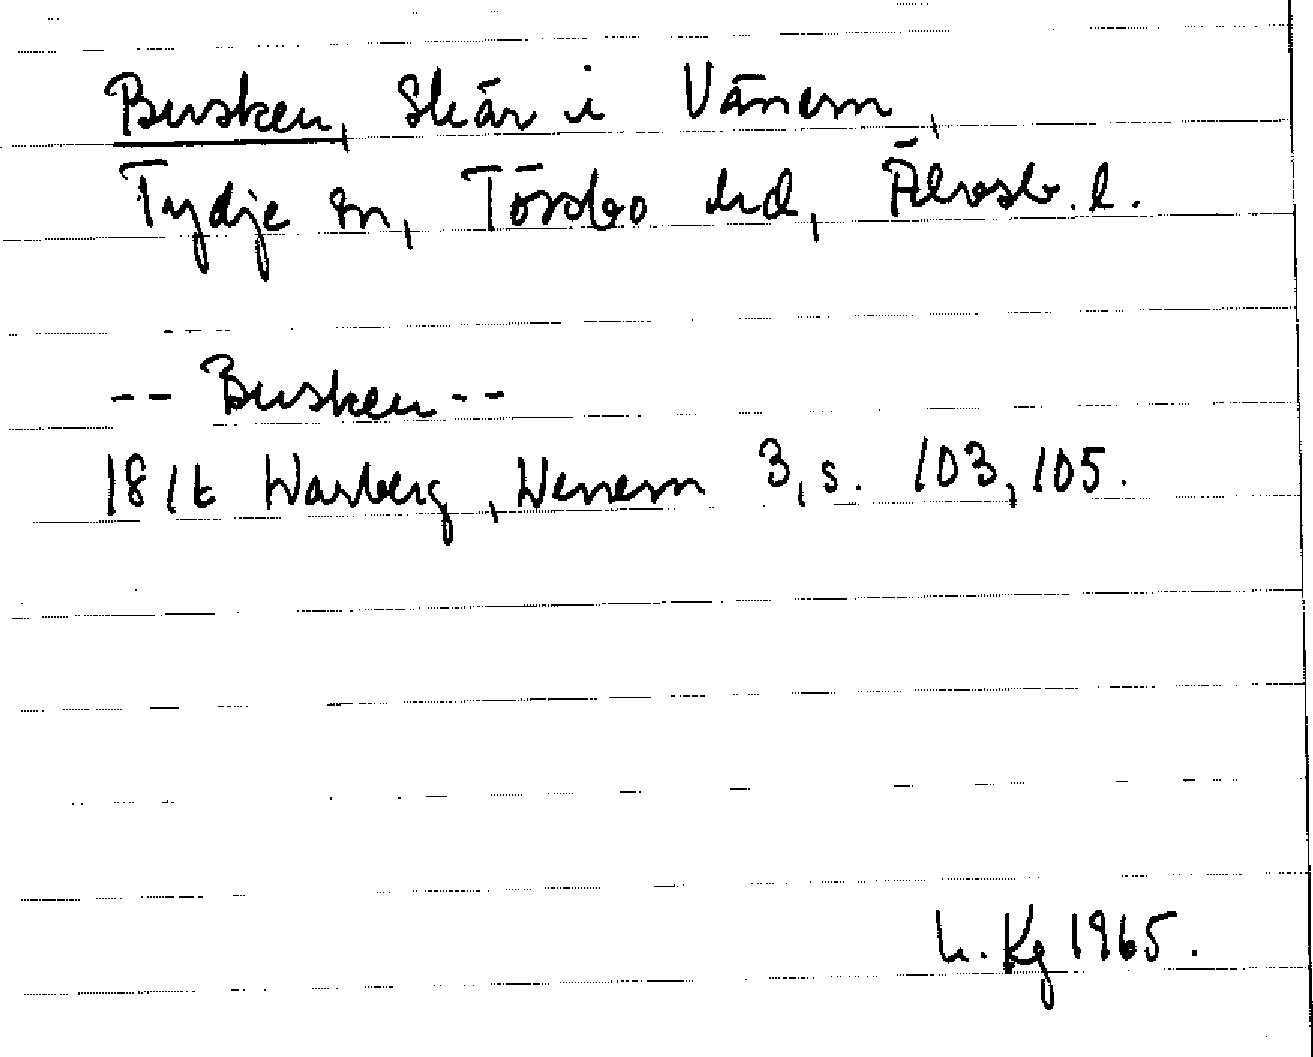 Busken, skär i Vänern,
Tydje sn, Tössbo hd, Älvsb. l.
-- Busken --
181t Warberg, Wenern 3, s. 103, 105.
L. Kg 1965.